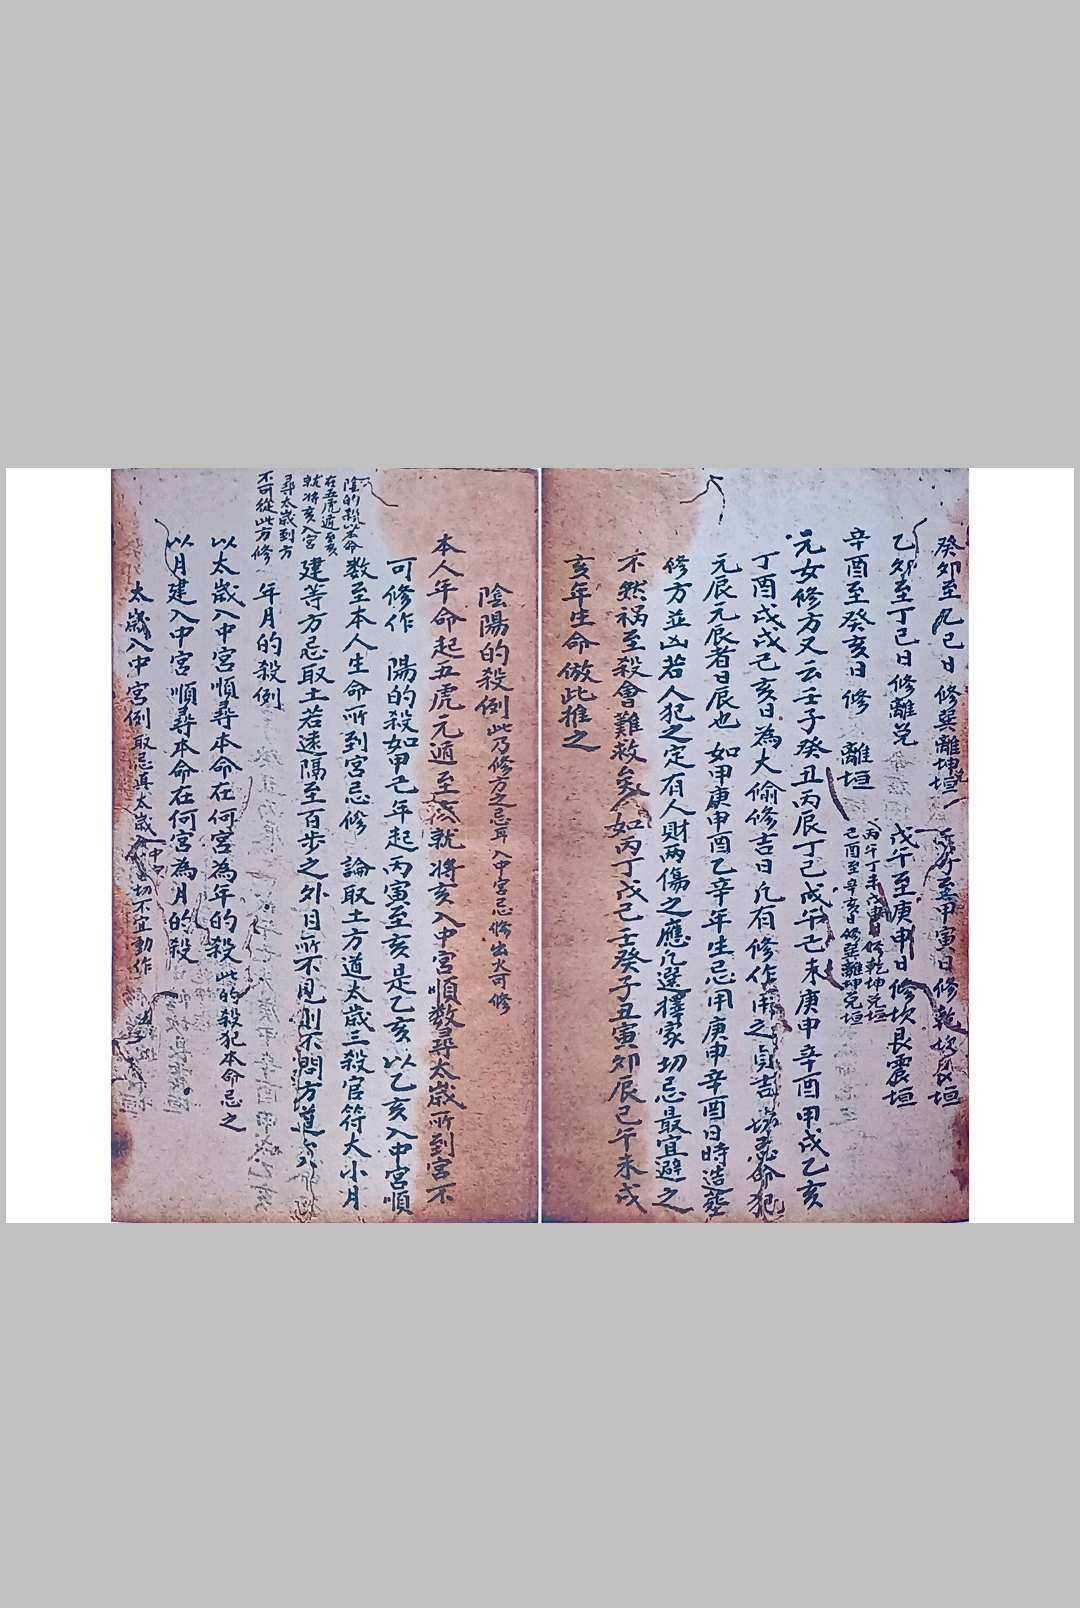 癸卯至 巳日修巽離坤垣 至甲寅日修乾坎艮垣
乙卯至丁巳日修離兌 戊午至庚申日修坎艮震垣
辛酉至癸亥日修 離垣
丙午丁未 修乾坤兌垣
己酉至辛亥日修巽離坤兌垣
元女修方又云壬子癸丑丙辰丁己戊午己未庚申辛酉甲戌乙亥
丁酉戊戌己亥日為大偷修吉日凡有修作用之貞吉 命犯
元辰元辰者日辰也 如甲庚申酉乙辛年生忌用庚申辛酉日時造塟
修方並凶若人犯之定有人財兩傷之應凡選擇家切忌最宜避之
不然祸至殺會難救矣 如丙丁戊己壬癸子丑寅卯辰巳午未戌
亥年生命倣此推之
陰陽的殺例此乃修方之忌耳入中宮忌修出火可修
本人年命起五虎元遁至 就將亥入中宮順数尋太歲所到宮不
可修作 陽的殺如甲己年起丙寅至亥是乙亥以乙亥入中宮順
数至本人生命所到宮忌修 論取土方道太歲三殺官符大小月
建等方忌取土若遠隔至百步之外目所不見則不問方道
陰的殺以本命
在五虎遁至亥
就將亥入中宮
尋太歲到方
不可從此方修
年月的殺例
以太歲入中宮順尋本命在何宮為年的殺 此的殺犯本命忌之
以月建入中宮順尋本命在何宮為月的殺
太歲入中宮例取忌真太歲入中 切不宜動作